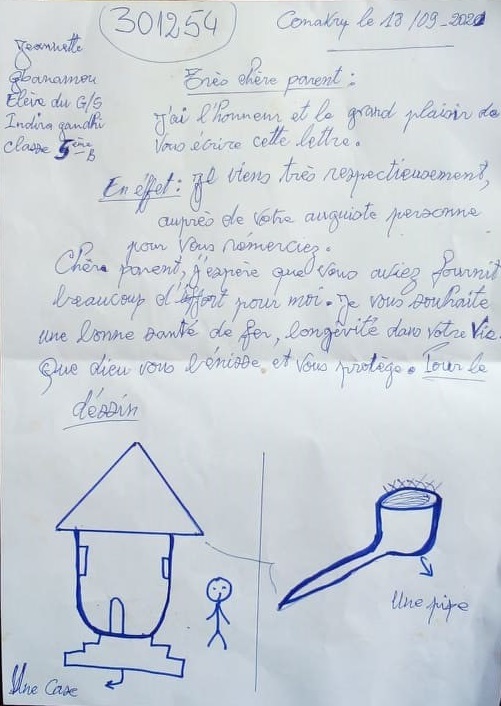 301254
Conakry le 18/09_2021
Jeannette
Gbanamou
Elève du G/S
Indira gandhi
Classe 5ème B
Très chère parent :
J'ai l'honneur et le grand plaisir de
Vous écrire cette lettre.
En effet : Je viens très respectieusement,
auprès de votre auguiste personne
pour vous rémerciez.
Chère parent, j'espère que vous aviez fournit
beaucoup d'effort pour moi. Je vous souhaite
une bonne santé de fer, longévité dans votre Vie.
Que dieu vous bénisse et vous protège. Pour le
déssin
Une pipe
Une Case